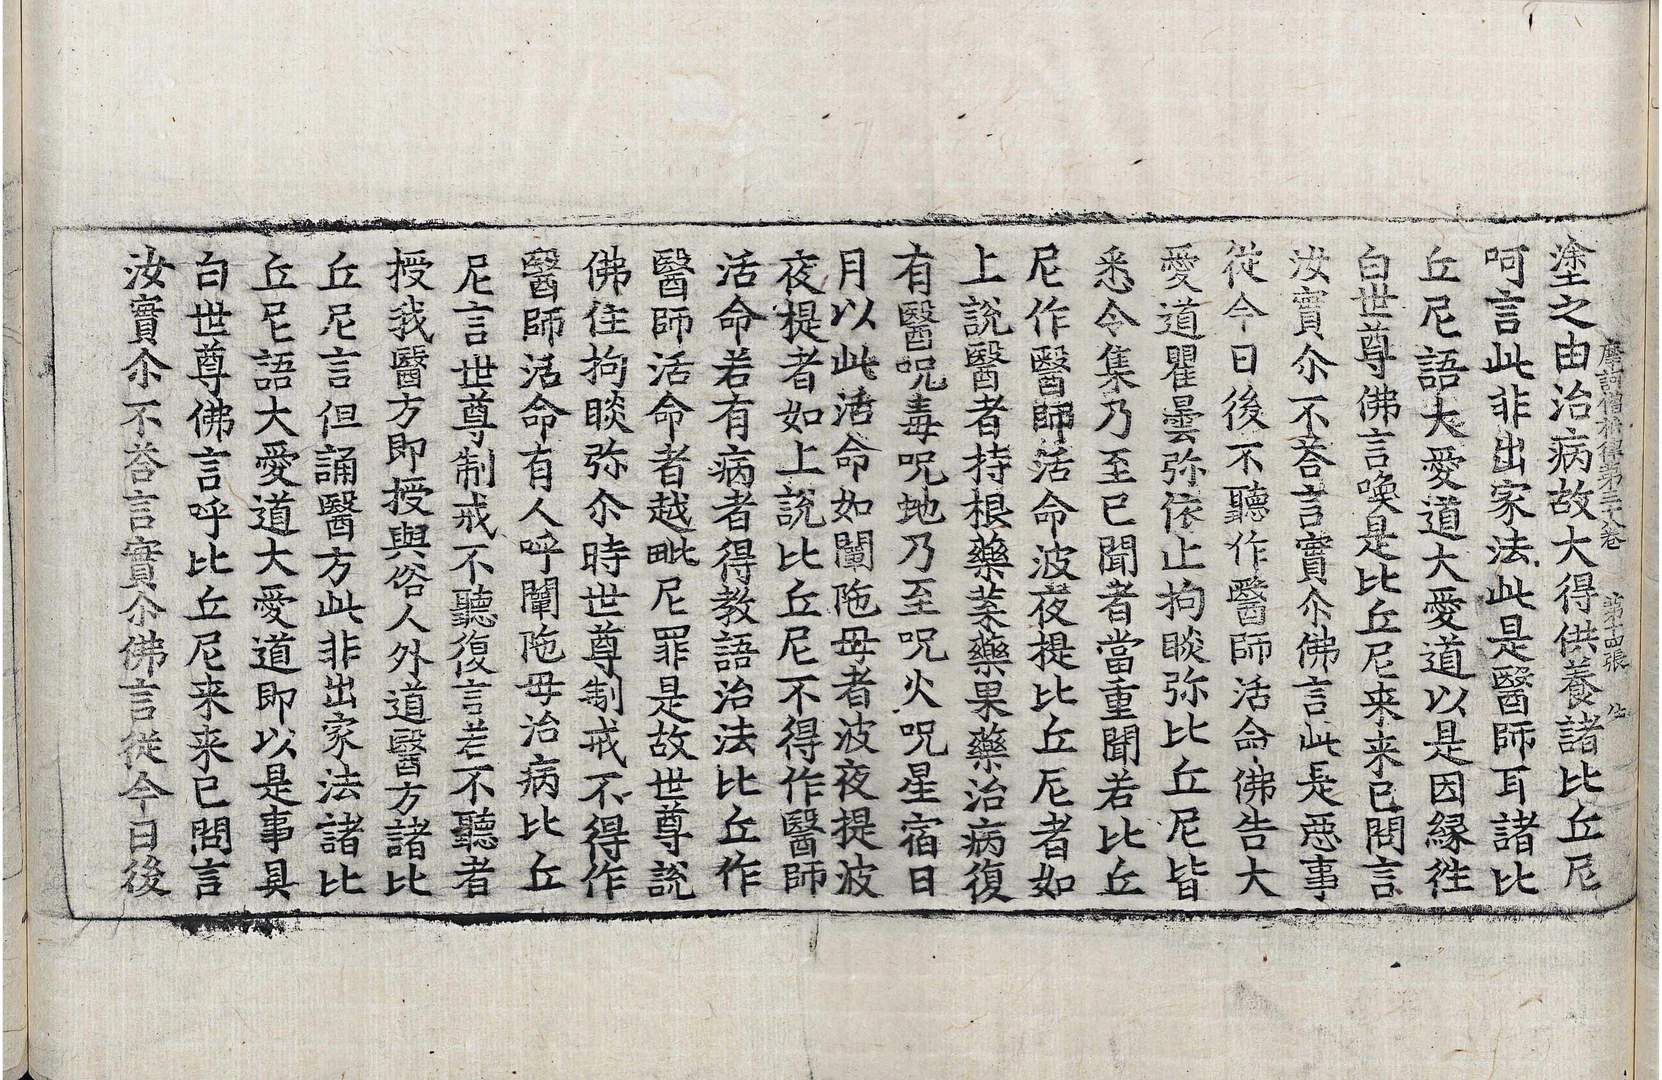 塗之由治病故大得供養諸比丘尼
摩訶僧祇律第三十八卷 第十四張
呵言此非出家法此是醫師耳諸比
丘尼語大愛道大愛道以是因縁往
白世尊佛言喚是比丘尼来来已問言
汝實尒不荅言實尒佛言此是惡事
従今日後不聽作醫師活命佛告大
愛道瞿曇弥依止拘睒弥比丘尼皆
悉令集乃至已聞者當重聞若比丘
尼作醫師活命波夜提比丘尼者如
上說醫者持根藥菜藥果藥治病復
有醫呪毒呪虵乃至呪火呪星宿日
月以此活命如闡陁母者波夜提波
夜提者如上說比丘尼不得作醫師
活命若有病者得教語治法比丘作
醫師活命者越毗尼罪是故世尊說
佛住拘睒弥尒時世尊制戒不得作
醫師活命有人呼闡陁母治病比丘
尼言世尊制戒不聽復言若不聽者
授我醫方即授與俗人外道醫方諸比
丘尼言但誦醫方此非出家法諸比
丘尼語大愛道大愛道即以是事具
白世尊佛言呼比丘尼来来已問言
汝實尒不荅言實尒佛言従今日後